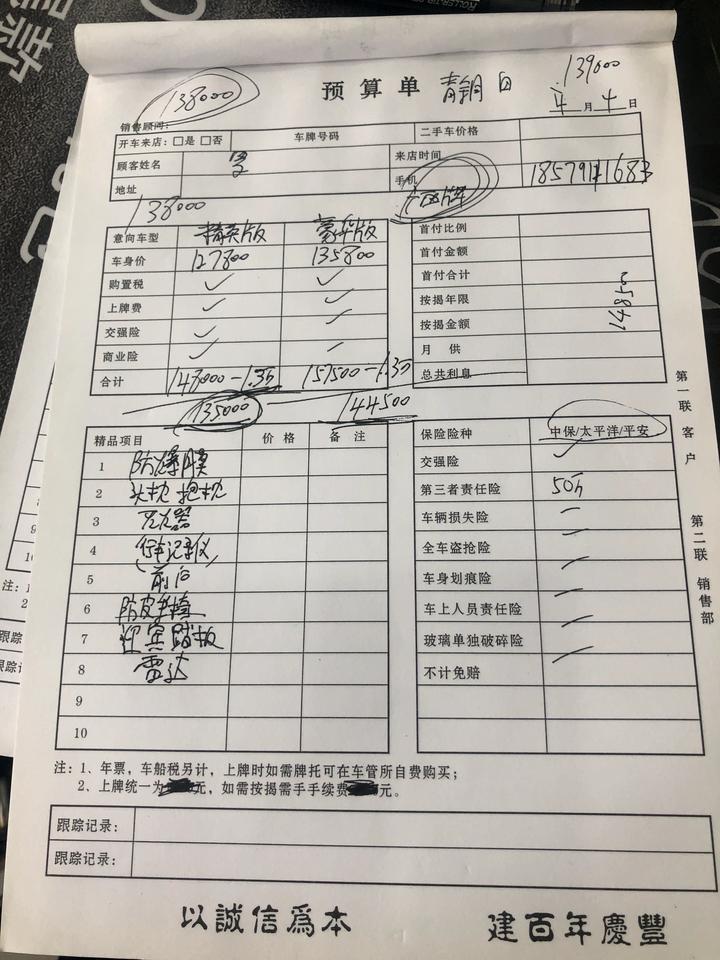 138000
预算单 青铜 白
139000
4月4日
销售顾问:
开车来店: □是 □否 车牌号码 二手车价格
顾客姓名 来店时间
地址 手机 18579141683
138000
意向车型 精英版 豪华版 首付比例
车身价 127800 135800 首付金额
购置税 ✓ ✓ 首付合计
上牌费 ✓ ✓ 按揭年限
交强险 ✓ 按揭金额
148500
商业险 ✓ 月 供
合计 148000-1.3万 157500-1.3万 总共利息
135000 144500
精品项目 价格 备注 保险险种 中保/太平洋/平安
1 防爆膜 交强险 ✓
2 头枕 抱枕 第三者责任险 50万
3 灭火器 车辆损失险
4 行车记录仪 全车盗抢险
5 (前后) 车身划痕险
6 车上人员责任险
7 迎宾踏板 玻璃单独破碎险
8 雷达 不计免赔
9
10
注: 1、年票,车船税另计,上牌时如需牌托可在车管所自费购买;
2、上牌统一为元,如需按揭需手手续费元。
跟踪记录:
跟踪记录:
以誠信爲本 建百年慶豐
第一联 客户
第二联 销售部